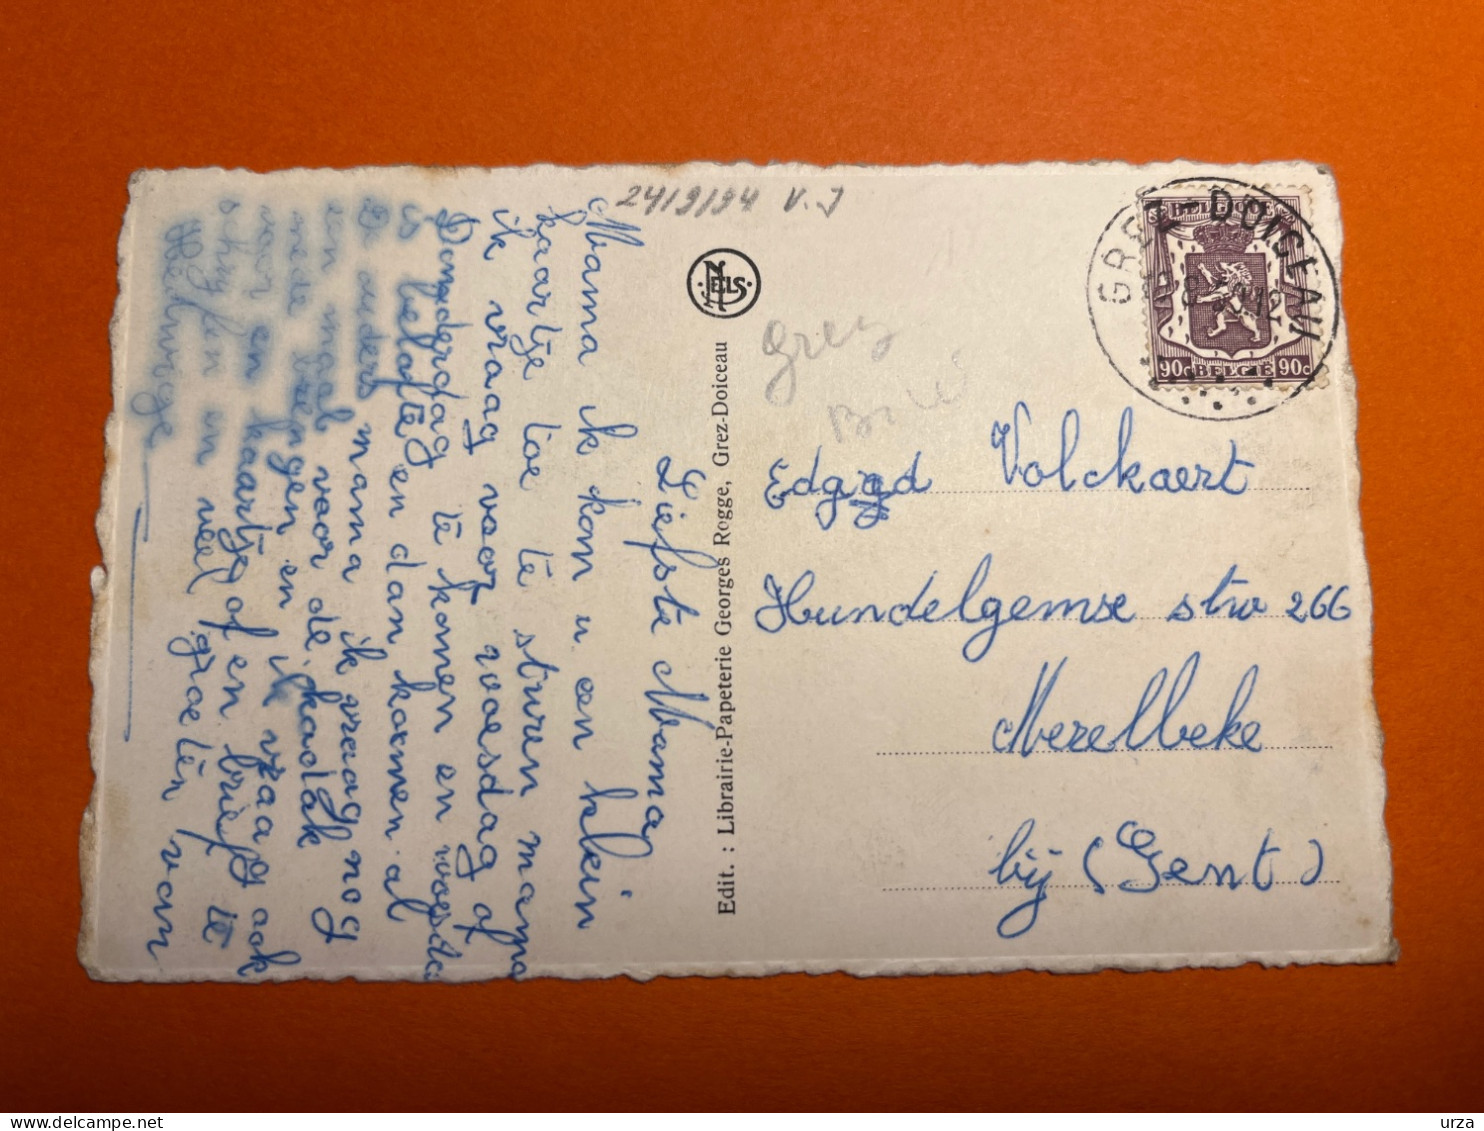 24/9/94 V. J
Liefste Mama
Mama ik kom u een klein
kaartje toe te sturen mama
ik vraag voor woesdag of
Donderdag te komen en woesda
is belofte en dan komen al
De ouders mama ik vraag nog
een maal voor de kodak
mede brengen en ik vraag ook
voor en kaartje of en brief te
schrijfen en veel groeten van
Hedwige
NELS
Edit. : Librairie-Papeterie Georges Rogge, Grez-Doiceau
Grez
GREZ-DOICEAU
BELGIQUE
90c BELGIE 90c
Edgard Volckaert
Hundelgemse stw 266
Merelbeke
bij (Gent)
urza